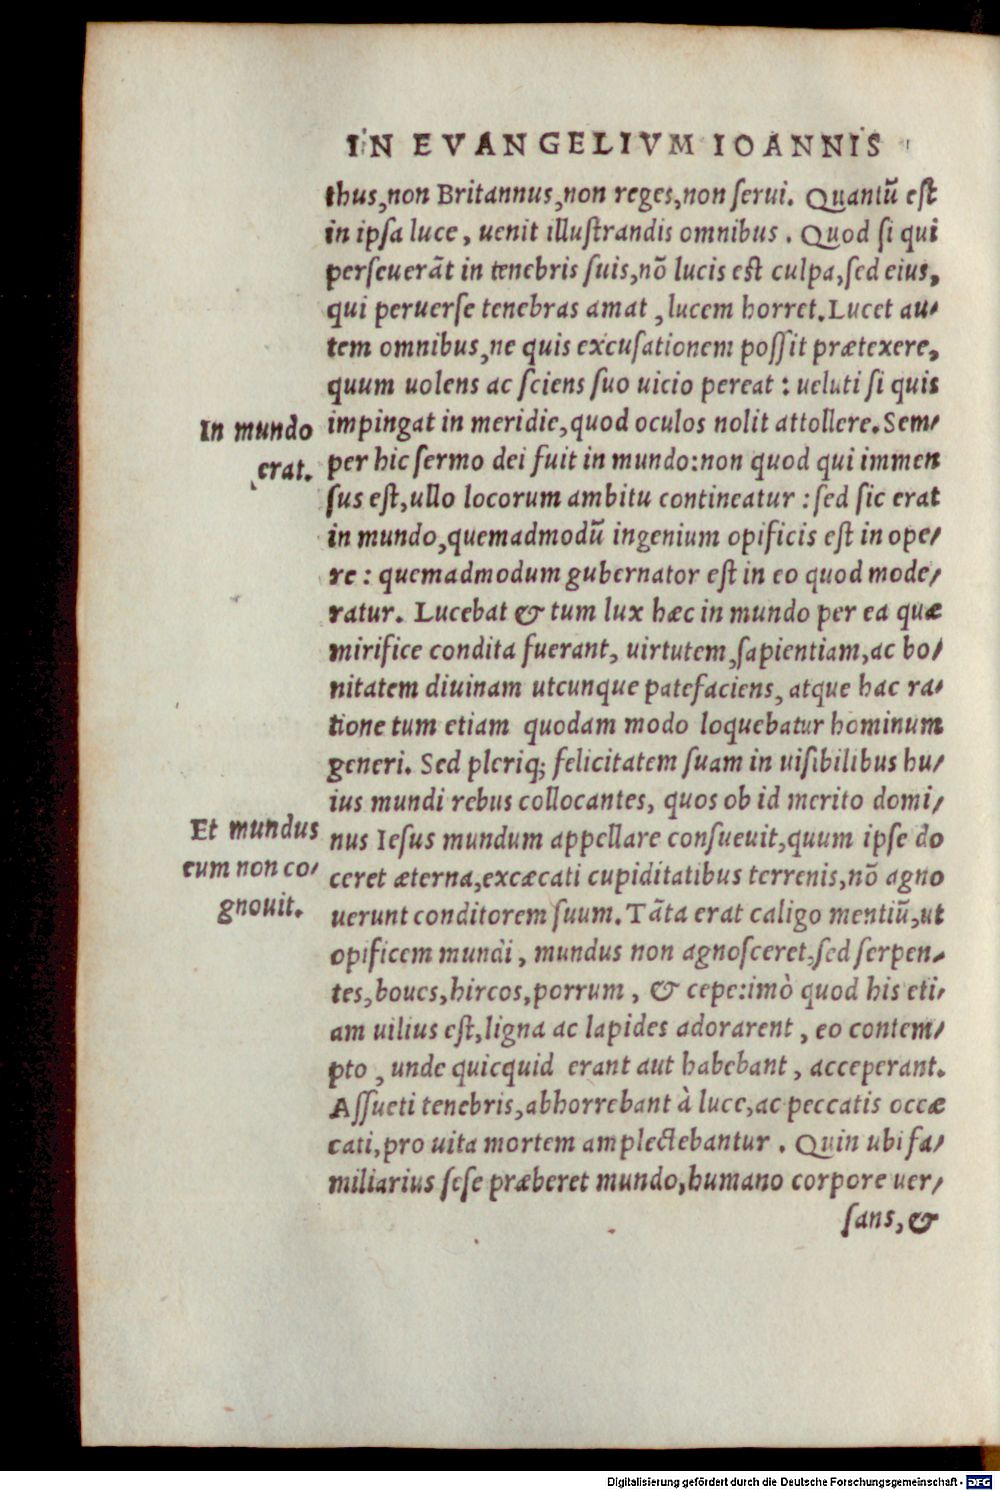 IN EVANGELIVM IOANNIS
thus,non Britannus,non reges,non ſerui. Quantũ eſt
in ipſa luce, uenit illuſtrandis omnibus. Quod ſi qui
perſeuerãt in tenebris ſuis,nõ lucis eſt culpa,ſed eius,
qui peruerſe tenebras amat, lucem horret. Lucet au-
tem omnibus,ne quis excuſationem poſſit prætexere,
quum uolens ac ſciens ſuo uicio pereat: ueluti ſi quis
In mundo
erat.
impingat in meridie,quod oculos nolit attollere. Sem-
per hic ſermo dei fuit in mundo:non quod qui immen
ſus eſt,ullo locorum ambitu contineatur: ſed ſic erat
in mundo,quemadmodũ ingenium opificis eſt in ope-
re: quemadmodum gubernator eſt in eo quod mode-
ratur. Lucebat & tum lux hæc in mundo per ea quæ
mirifice condita fuerant, uirtutem,ſapientiam,ac bo-
nitatem diuinam utcunque patefaciens, atque hac ra-
tione tum etiam quodam modo loquebatur hominum
generi. Sed pleriq; felicitatem ſuam in uiſibilibus hu-
ius mundi rebus collocantes, quos ob id merito domi-
Et mundus
eum non co-
gnouit.
nus Ieſus mundum appellare conſueuit,quum ipſe do
ceret æterna,excæcati cupiditatibus terrenis,nõ agno
uerunt conditorem ſuum. Tãta erat caligo mentiũ,ut
opificem mundi, mundus non agnoſceret,ſed ſerpen-
tes,boues,hircos,porrum, & cepe:imò quod his eti-
am uilius eſt,ligna ac lapides adorarent, eo contem-
pto, unde quicquid erant aut habebant, acceperant.
Aſſueti tenebris,abhorrebant à luce,ac peccatis occæ
cati,pro uita mortem amplectebantur. Quin ubi fa-
miliarius ſeſe præberet mundo,humano corpore uer-
ſans, &
Digitalisierung gefördert durch die Deutsche Forschungsgemeinschaft - DFG